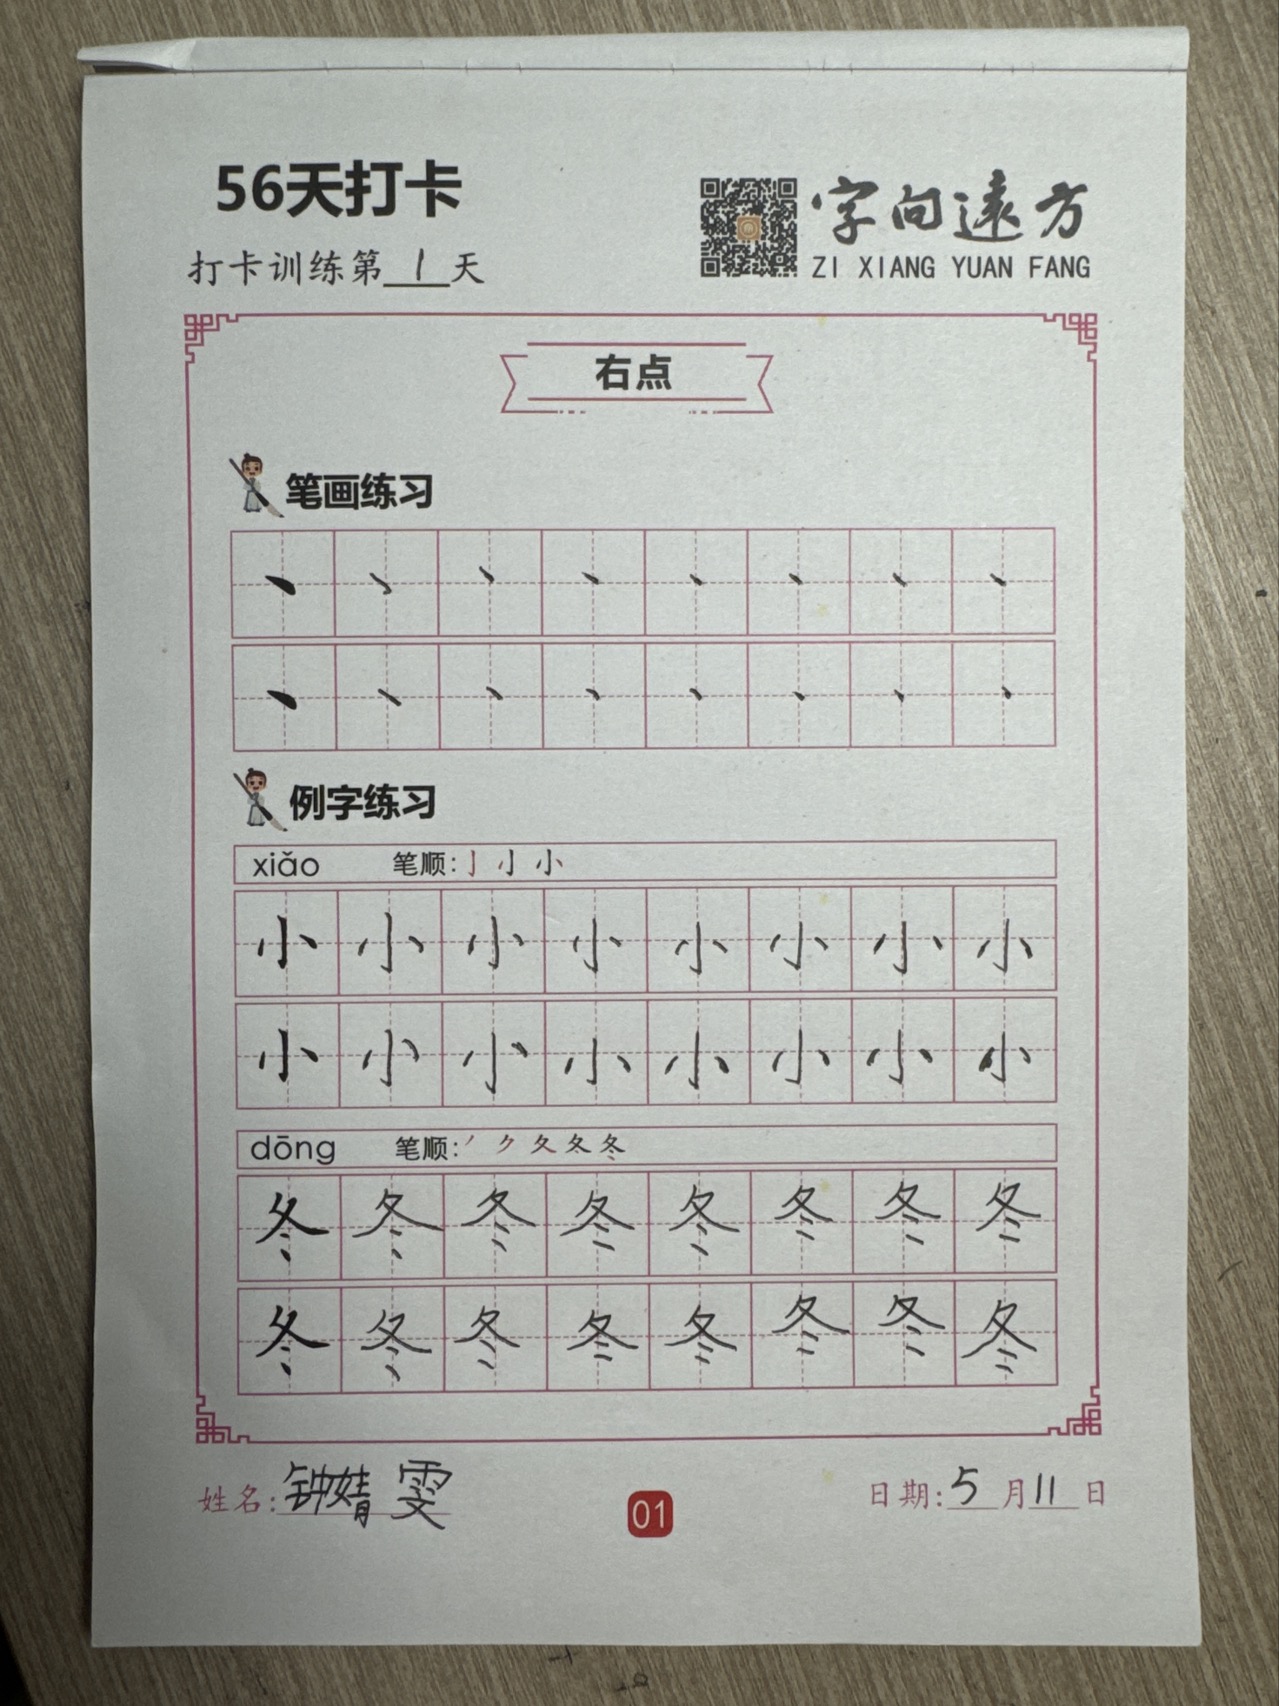 56天打卡
字向遠方
打卡训练第1天
ZI XIANG YUAN FANG
右点
笔画练习
丶丶丶丶丶丶丶丶
丶丶丶丶丶丶丶丶
例字练习
xiǎo 笔顺:亅 小 小
小小小小小小小小
小小小小小小小小
dōng 笔顺:丿 ク 夂 冬 冬
冬冬冬冬冬冬冬冬
冬冬冬冬冬冬冬冬
姓名:钟婧雯
01
日期:5月11日